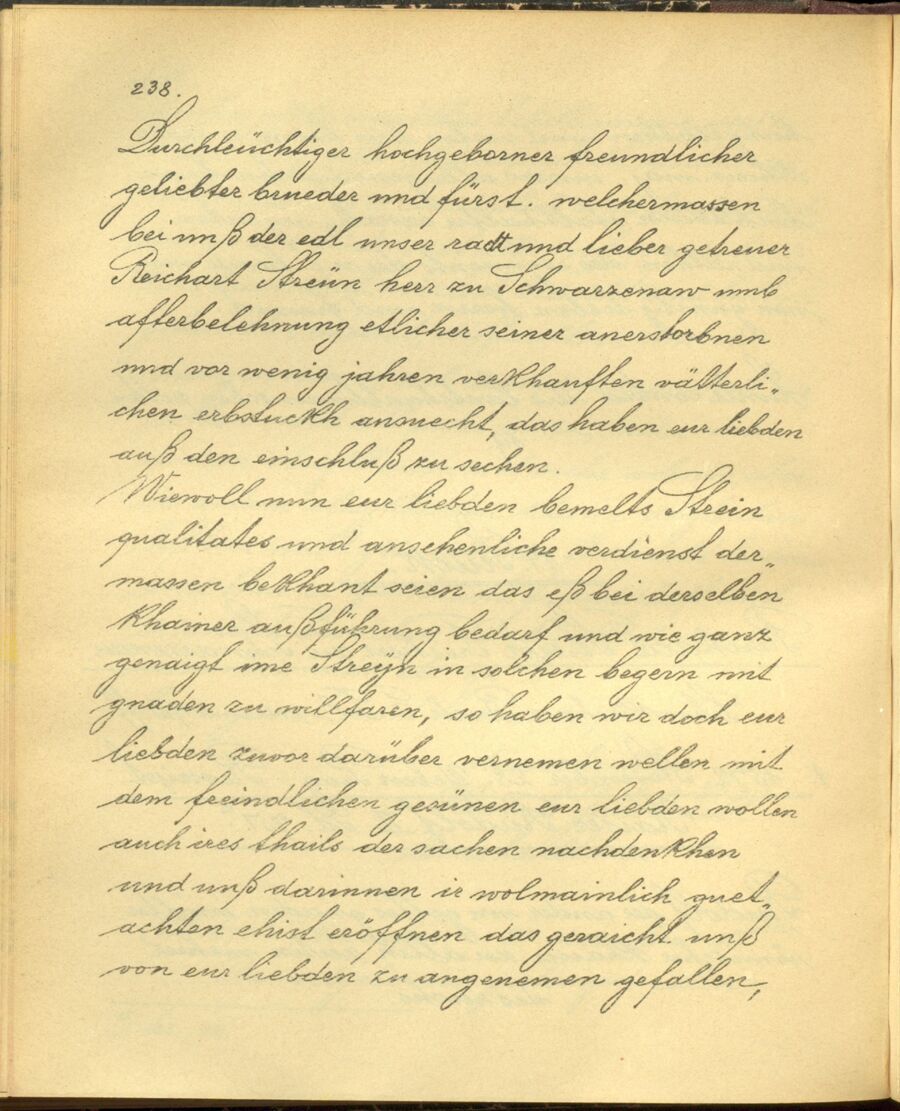 238.
Durchleüchtiger hochgeborner freundlicher
geliebter brueder und fürst. welchermassen
bei unß der edl unser radt und lieber getreuer
Reichart Streün herr zu Schwarzenaw umb
afterbelehnung etlicher seiner anerstorbnen
und vor wenig jahren verkhauften vätterli„
chen erbstuckh ansuecht, das haben eur liebden
auß den einschluß zu sechen.
Wiewoll nun eur liebden bemelts Strein
qualitates und ansehenliche verdienst der„
massen bekhant seien das eß bei derselben
khainer außführung bedarf und wie ganz
genaigt ime Streÿn in solchen begern mit
gnaden zu willfaren, so haben wir doch eur
liebden zuvor darüber vernemen wellen mit
dem freindlichen gesünen eur liebden wollen
auch ires thails der sachen nachdenkhen
und unß darinnen ir wolmainlich guet„
achten ehist eröffnen das geraicht unß
von eur liebden zu angenemen gefallen,